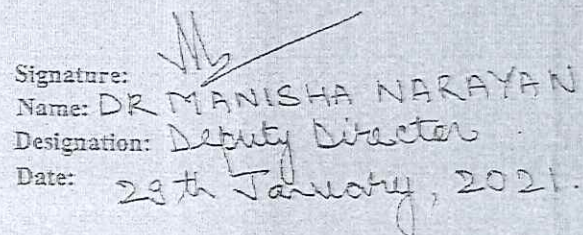 Signature:
Name: DR MANISHA NARAYAN
Designation: Deputy Director.
Date: 29th January, 2021.